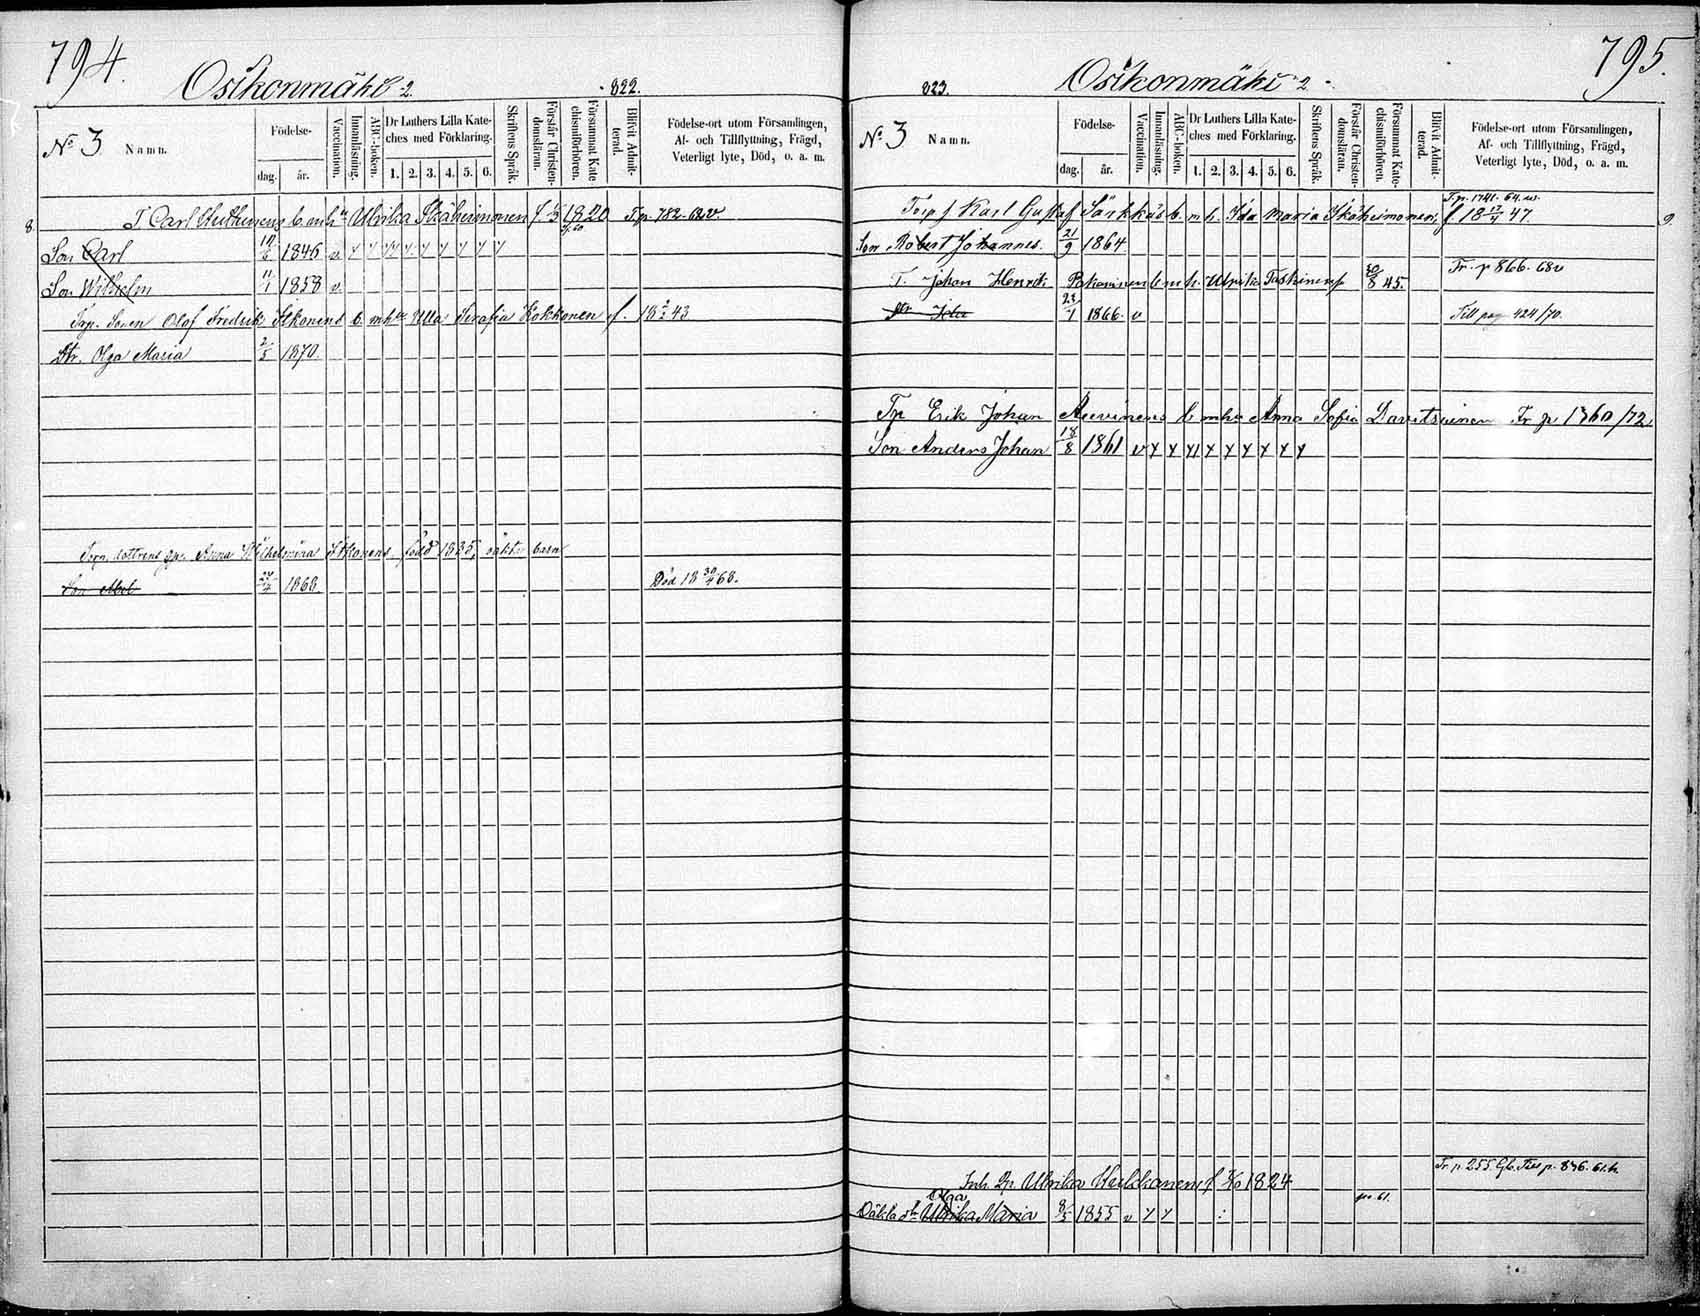 794.
Osikonmäki 2.
822.
No 3 Namn.
Födelse-
dag.
år.
Vaccination.
Innanläsning.
ABC-boken.
Dr Luthers Lilla Kate-
ches med Förklaring.
1. 2. 3. 4. 5. 6.
Skriftens Språk.
Förstår Christen-
domsläran.
Försummat Kate-
chismiförhören.
Blifvit Admit-
terad.
Födelse-ort utom Församlingen,
Af- och Tillflyttning, Frägd,
Veterligt lyte, Död, o. a. m.
8. T. Carl b. m. h. Ulrika Ikäheimonen f. 1820 Fr. p. 782-68
Son Carl 1846 v
Son Wilhelm 11/1 1858 v.
Torp. Sonen Olof Fredrik Itkonens b. m. h. Ulla Serafia Kokkonen f. 43
Dtr. Olga Maria 2/5 1870.
Torp. dottrens gp. Anna Wilhelmina Itkonens född 1835, oäkta barn
Son Abel 27/4 1868 Död 18 30/4 68.
795.
823. Osikonmäki 2
No 3 Namn.
Födelse-
dag.
år.
Vaccination.
Innanläsning.
ABC-boken.
Dr Luthers Lilla Kate-
ches med Förklaring.
1. 2. 3. 4. 5. 6.
Skriftens Språk.
Förstår Christen-
domsläran.
Försummat Kate-
chismiförhören.
Blifvit Admit-
terad.
Födelse-ort utom Församlingen,
Af- och Tillflyttning, Frägd,
Veterligt lyte, Död, o. a. m.
Fr. p. 1741-64
Torp f Karl Gustaf Särkkäs b. m. h. Ida Maria Ikäheimonen, f 18 17/4 47. 9.
Son Robert Johannes. 21/9 1864
Fr. p 866. 68
T. Johan Henrik Pakarinen b m h. Ulrika Taskinens 30/8 45.
Dtr Ida 23/1 1866. v Till pag 424/70.
Tp Erik Johan Auvinens b mh Anna Sofia Davitsainen Fr p 1360/72
Son Anders Johan 18/8 1861 v
Fr. p 255. Till p. 836. 61.
Inh. Ulrika Heikkanens f 1824
Olga
Oäkta dtr Ulrika Maria 1855 v
61.